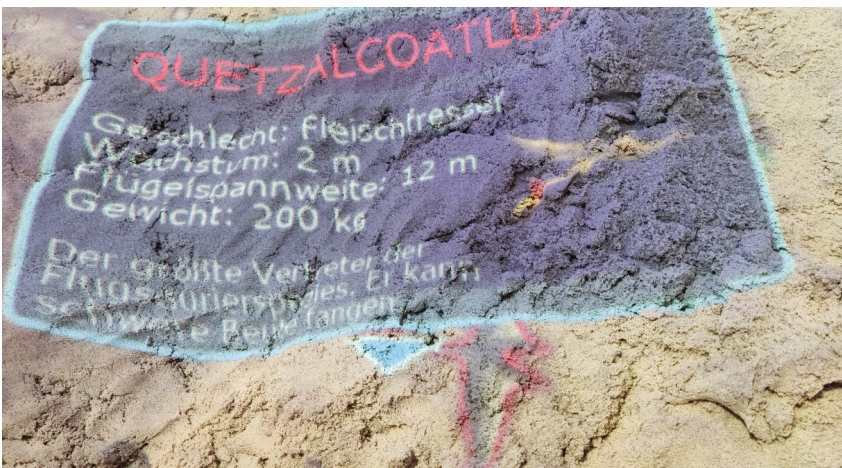 QUETZALCOATLUS
Geschlecht: fleischfresser
Wachstum: 2 m
Flügelspannweite: 12 m
Gewicht: 200 kg
Der größte Vertreter der
Er kann
schwere Beute fangen